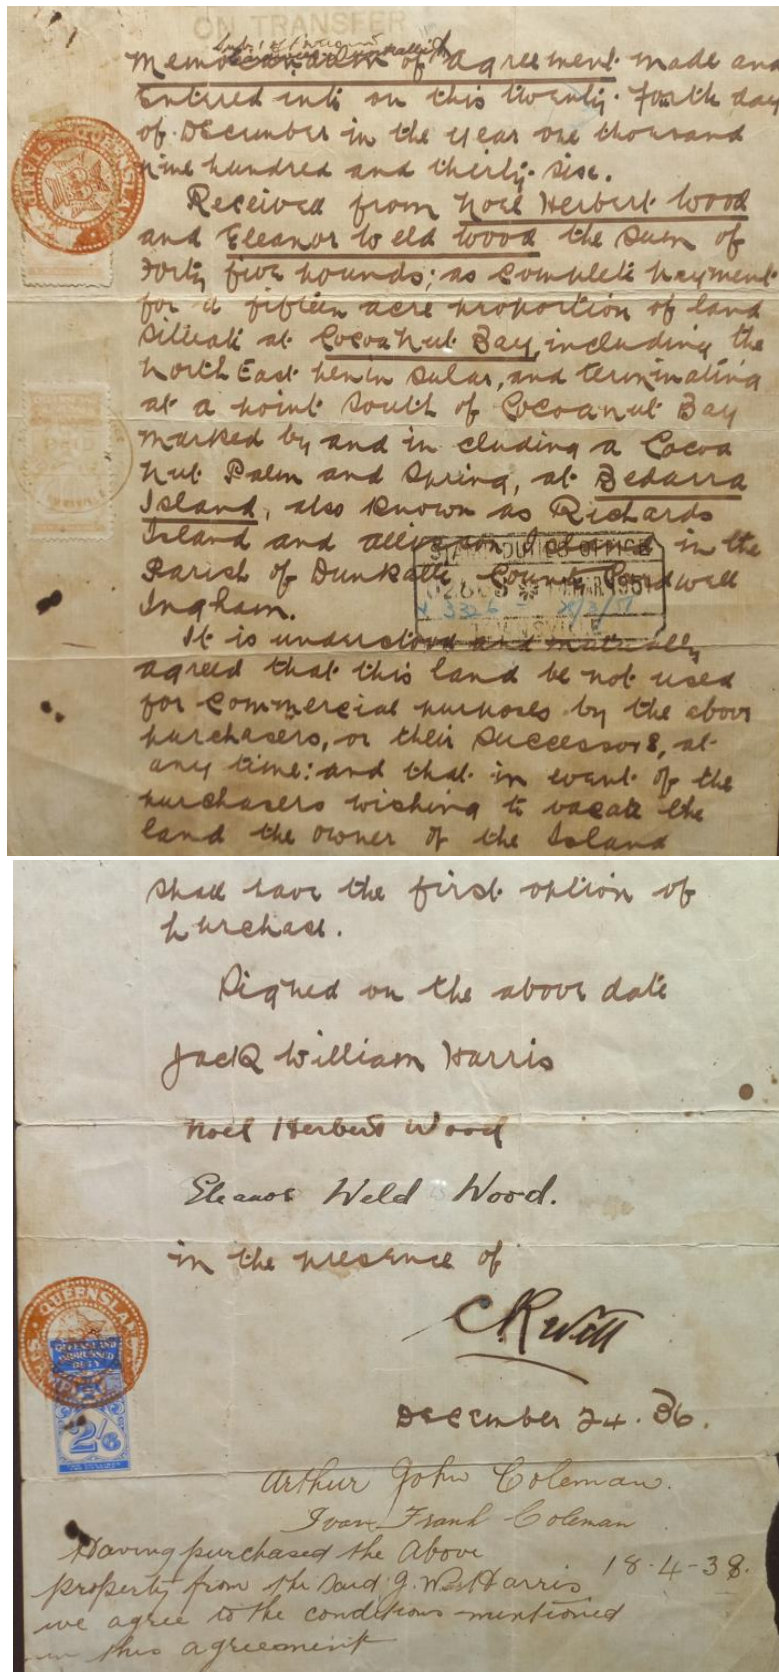 ON TRANSFER
Memorandum of Agreement made and
Entered into on this twenty-fourth day
of December in the year one thousand
nine hundred and thirty-six.
Received from Noel Herbert Wood
and Eleanor Weld Wood the sum of
Forty five pounds; as complete payment
for a fifteen acre proportion of land
situate at Cocoanut Bay, including the
North East peninsular, and terminating
at a point South of Cocoanut Bay
marked by and in cluding a Cocoa
nut Palm and Spring, at Bedarra
Island, also known as Richards
Island and Allison Island in the
Parish of Dunkalli County Cardwell
Ingham.
STAMP DUTIES OFFICE
1951
It is understood and mutually
agreed that this land be not used
for commercial purposes by the above
purchasers, or their successors, at
any time: and that in event of the
purchasers wishing to vacate the
land the owner of the Island
shall have the first option of
purchase.
Signed on the above date
Jack William Harris
Noel Herbert Wood
Eleanor Weld Wood.
in the presence of
December 24. 36.
QUEENSLAND
QUEENSLAND
IMPRESSED
DUTY
2/6
Arthur John Coleman.
Ivan Frank Coleman
18-4-38.
Having purchased the Above
property from the said J. W. Harris
we agree to the conditions mentioned
in this agreement